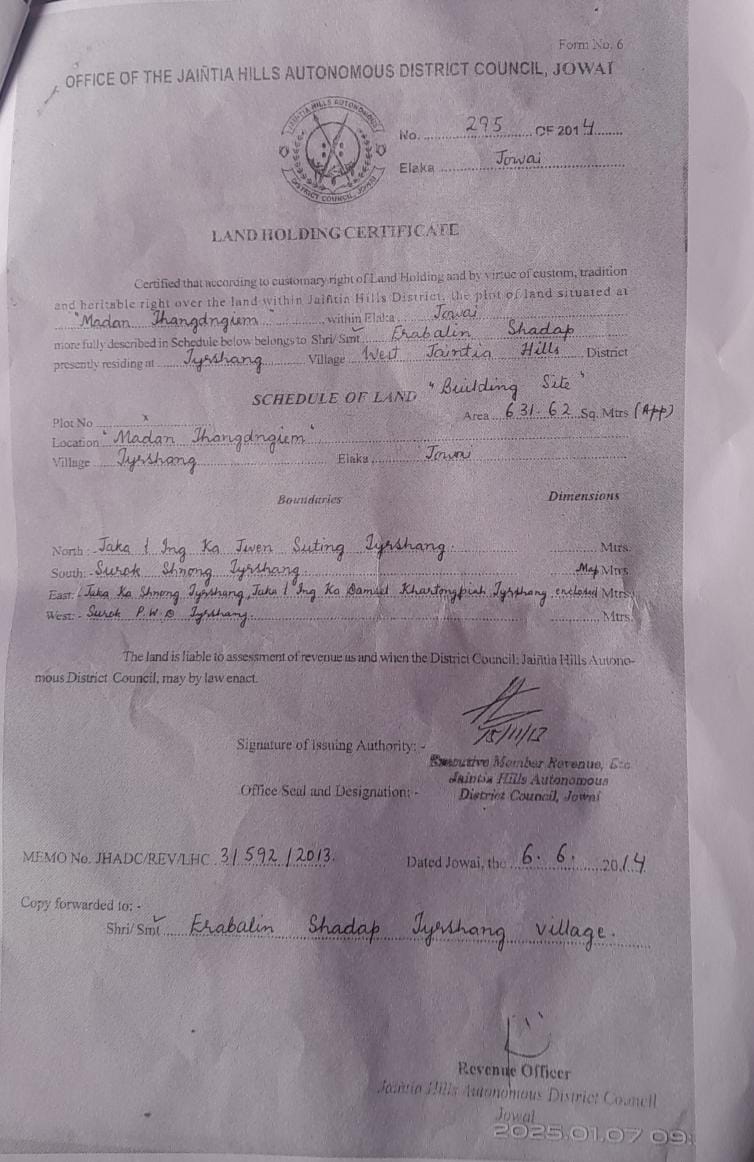 Form No. 6
OFFICE OF THE JAIÑTIA HILLS AUTONOMOUS DISTRICT COUNCIL, JOWAI
JAIÑTIA HILLS AUTONOMOUS
DISTRICT COUNCIL, JOWAI
No. 295 OF 2014
Elaka Jowai
LAND HOLDING CERTIFICATE
Certified that according to customary right of Land Holding and by virtue of custom, tradition
and heritable right over the land within Jaiñtia Hills District, the plot of land situated at
"Madan Thangdngiem", within Elaka Jowai
more fully described in Schedule below belongs to Shri/ Smt Erabalin Shadap
presently residing at Tyrshang Village West Jaintia Hills District
SCHEDULE OF LAND "Building Site"
Plot No x Area 631.62 Sq. Mtrs (App)
Location "Madan Thangdngiem"
Village Tyrshang Elaka Jowai
Boundaries Dimensions
North :- Jaka & Ing Ka Twen Suting Tyrshang. Mtrs.
South: - Surok Shnong Tyrshang. Map Mtrs
East: Jaka Ka Shnong Tyrshang, Jaka & Ing Ka Tyrshang enclosed Mtrs.
West: - Surok P.W.D Tyrshang. Mtrs.
The land is liable to assessment of revenue as and when the District Council, Jaiñtia Hills Autono-
mous District Council, may by law enact.
Signature of issuing Authority: -
Executive Member Revenue, Etc
Jaintia Hills Autonomous
Office Seal and Designation: - District Council, Jowai
MEMO No. JHADC/REV/LHC 31592/2013. Dated Jowai, the 6.6. 2014
Copy forwarded to: -
Shri/ Smt Erabalin Shadap Tyrshang village.
Revenue Officer
Jaintia Hills Autonomous District Council
Jowai
2025.01.07 09